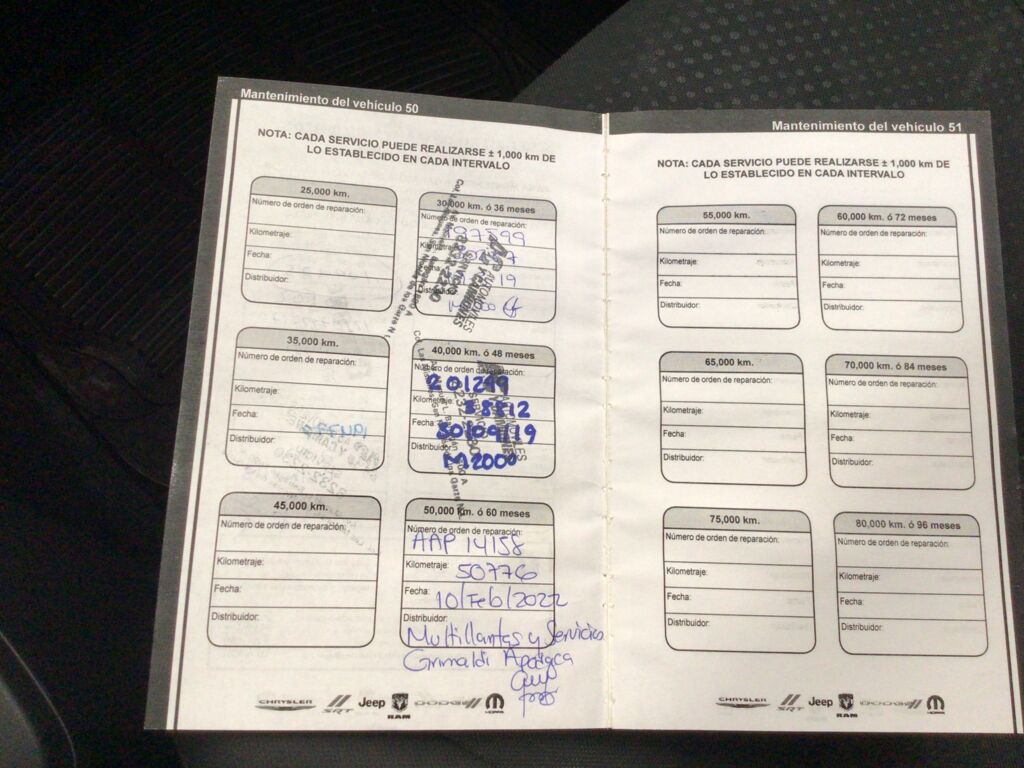 Mantenimiento del vehículo 50
NOTA: CADA SERVICIO PUEDE REALIZARSE ± 1,000 km DE
LO ESTABLECIDO EN CADA INTERVALO
25,000 km.
Número de orden de reparación:
Kilometraje:
Fecha:
Distribuidor:
30,000 km. ó 36 meses
Número de orden de reparación:
35,000 km.
Número de orden de reparación:
Kilometraje:
Fecha:
Distribuidor:
40,000 km. ó 48 meses
Número de orden de reparación:
201299
Kilometraje: 38812
Fecha: 30/09/19
Distribuidor:
M2000
45,000 km.
Número de orden de reparación:
Kilometraje:
Fecha:
Distribuidor:
50,000 km. ó 60 meses
Número de orden de reparación:
AAP 14158
Kilometraje:
50776
Fecha: 10/Feb/2022
Distribuidor:
Multillantas y Servicios
Grimaldi Apodaca
CHRYSLER SRT Jeep RAM DODGE
Mantenimiento del vehículo 51
NOTA: CADA SERVICIO PUEDE REALIZARSE ± 1,000 km DE
LO ESTABLECIDO EN CADA INTERVALO
55,000 km.
Número de orden de reparación:
Kilometraje:
Fecha:
Distribuidor:
60,000 km. ó 72 meses
Número de orden de reparación:
Kilometraje:
Fecha:
Distribuidor:
65,000 km.
Número de orden de reparación:
Kilometraje:
Fecha:
Distribuidor:
70,000 km. ó 84 meses
Número de orden de reparación:
Kilometraje:
Fecha:
Distribuidor:
75,000 km.
Número de orden de reparación:
Kilometraje:
Fecha:
Distribuidor:
80,000 km. ó 96 meses
Número de orden de reparación:
Kilometraje:
Fecha:
Distribuidor:
CHRYSLER SRT Jeep RAM DODGE